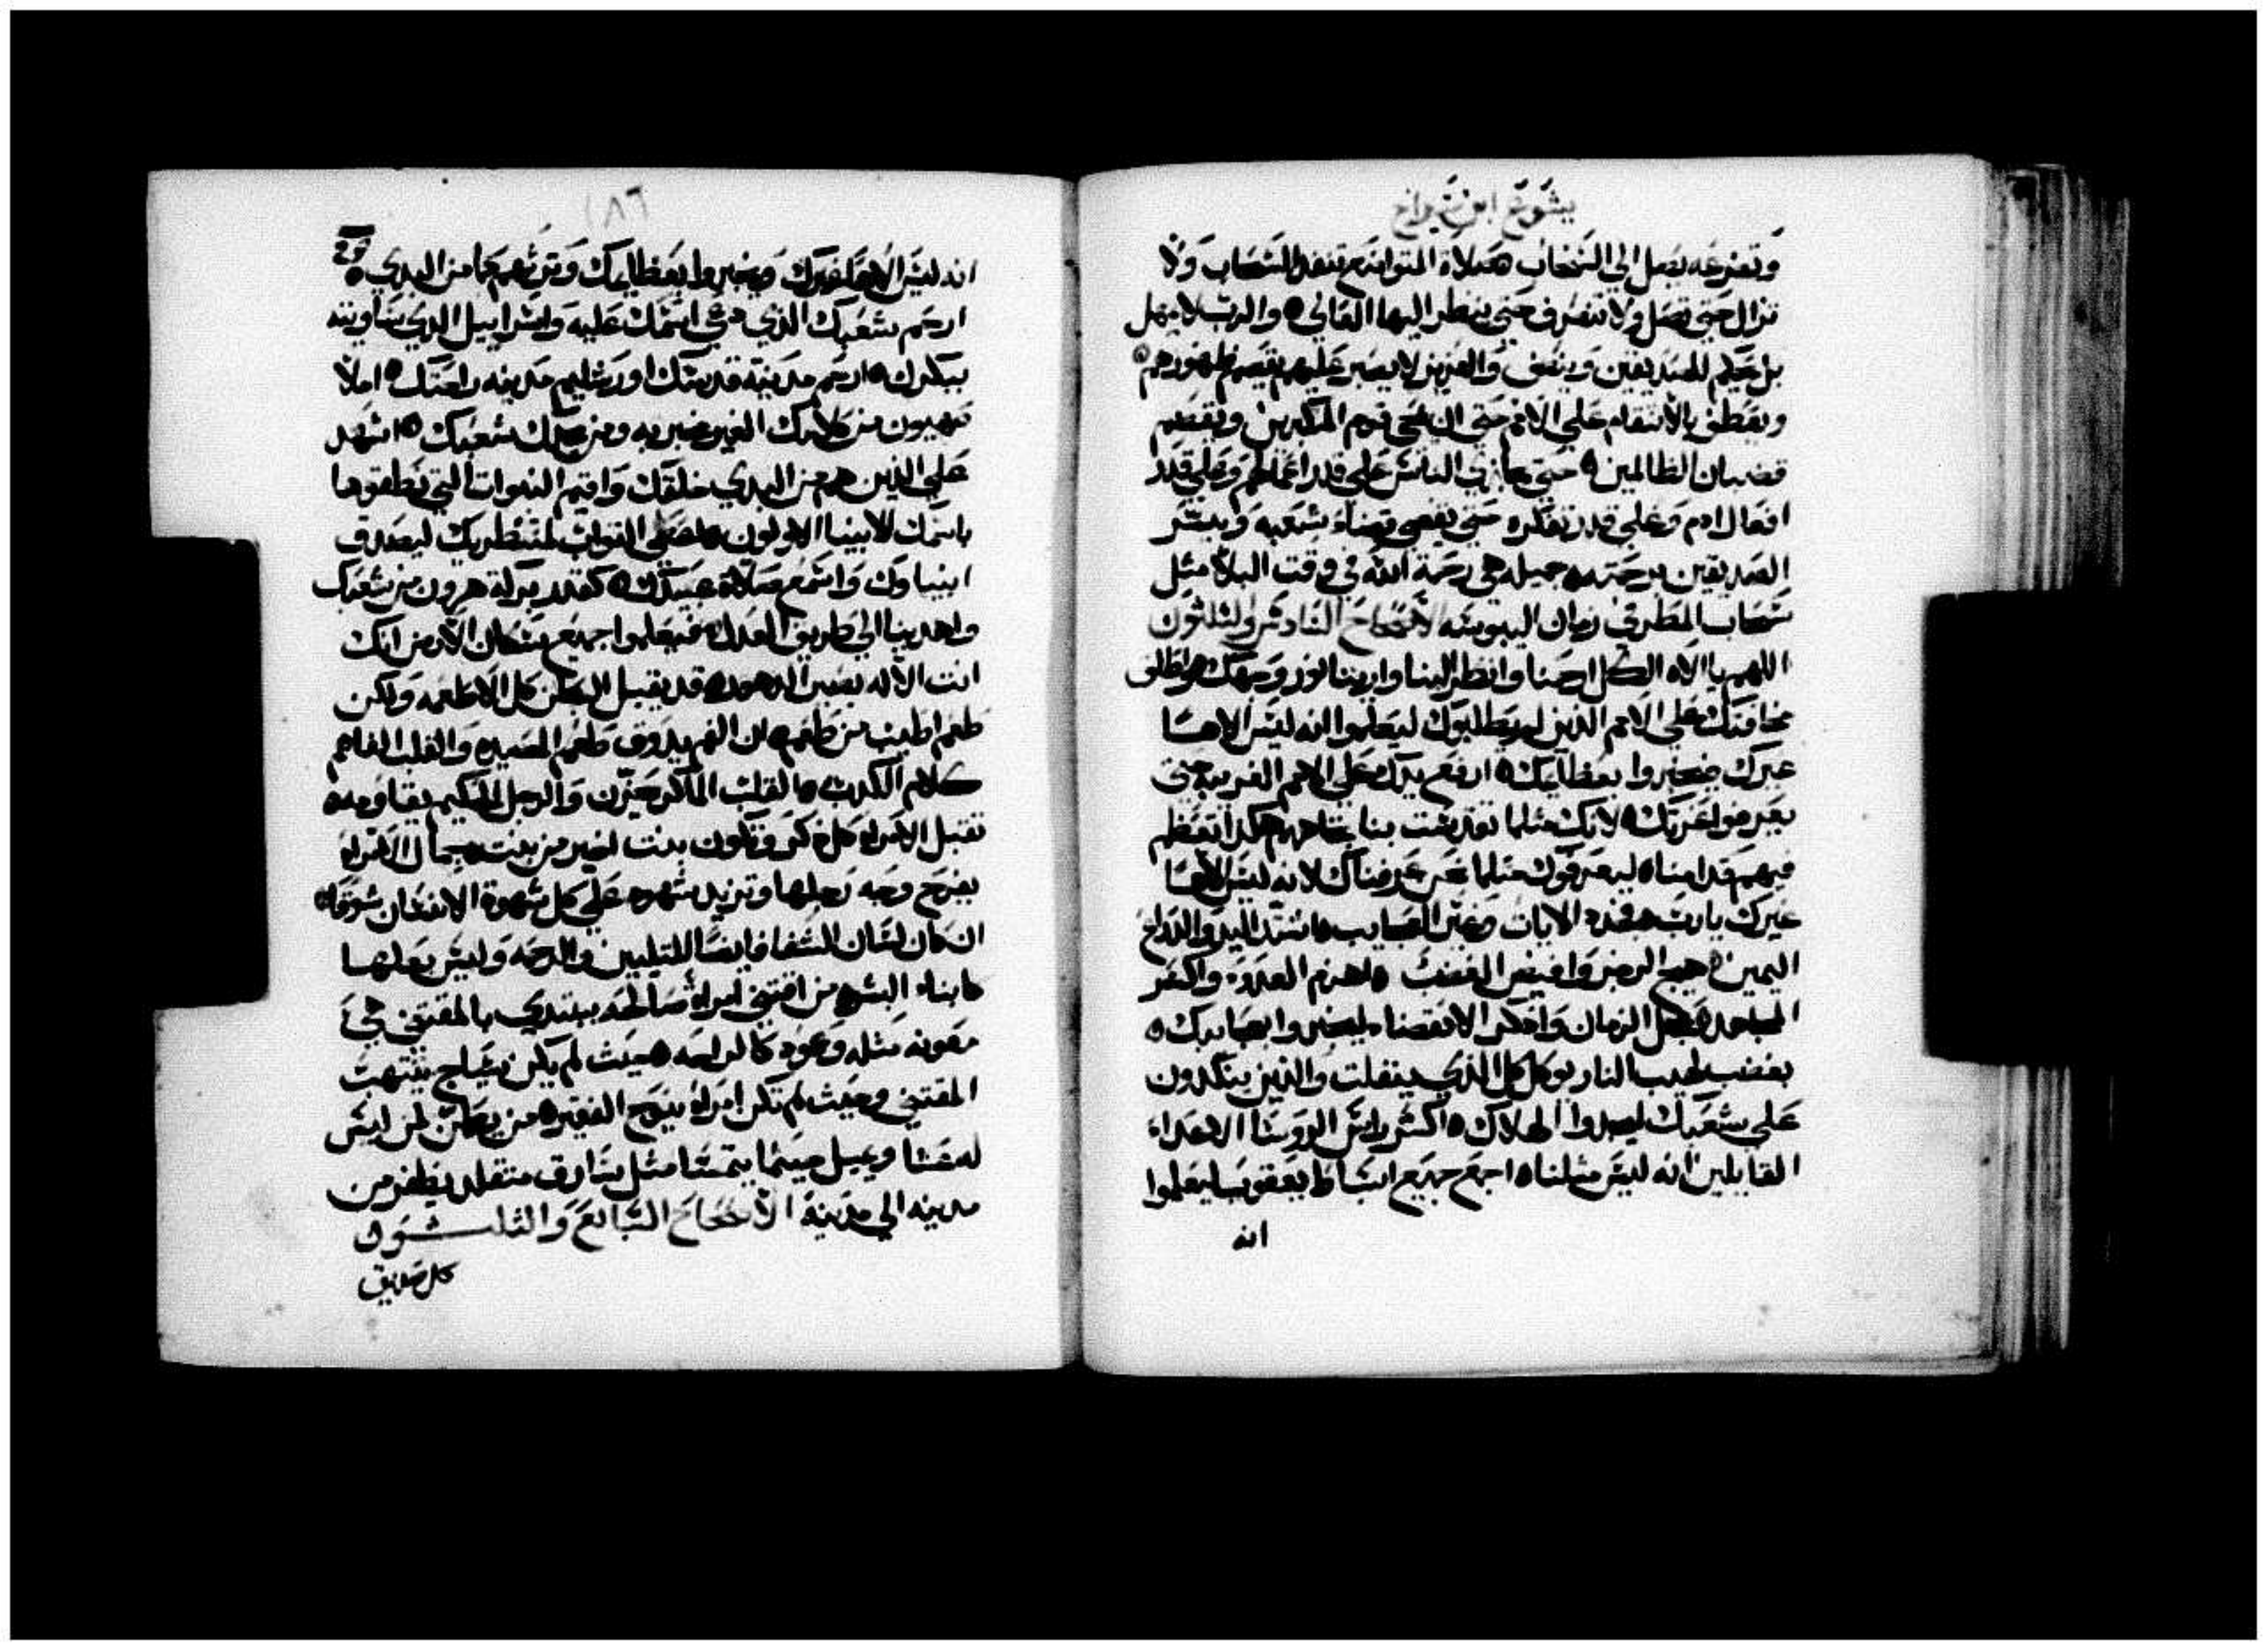 يشوع ابن سيراخ
وتضرعه يصل الي السحاب صلاة المتواضع تنفد السحاب ولا
تزال حتي تصل ولا تنصرف حتي ينظر اليها العالي والرب لا يمهل
بل يحكم للصديقين وينصف والعزيز لا يصبر عليهم يقصم ظهورهم
ويعطف بالانتقام علي الامم حتي ان يمحي قوم المتكبرين ويقصم
قضبان الظالمين حتي يجازي الناس علي قدر اعمالهم وعلي قدر
افعال ادم وعلي قدر تفكره حتي يقضي قضاء شعبه ويسر
الصديقين برحمته جميله هي رحمة الله في وقت البلا مثل
سحاب المطر في زمان اليبوسه الاصحاح السادس والثلثون
اللهم يا الاه الكل ارحمنا وانظر الينا وارينا نور وجهك واطلق
مخافتك علي الامم الذين لم يطلبوك ليعلموا انه ليس الاها
غيرك فيخبروا بعظايمك ارفع يدك علي الامم الغريبه حتي
يعرفوا عزتك لانك مثلما تقدست بنا تجاههم هكدا تعظم
فيهم قدامنا ليعرفوك مثلما نحن عرفناك لانه ليس الاها
غيرك يا رب جدد الايات وغير العجايب شدد اليد والدراع
اليمين هيج الرجز وافيض الغضب اهزم العدو واكسر
المجاهد عجل الزمان وادكر الانقضا ليخبروا بعجايبك
بغضب لهيب النار يوكل كل الذي ينفلت والذين ينكدون
علي شعبك ليجدوا الهلاك اكسر راس الروسا الاعداء
القايلين انه ليس مثلنا اجمع جميع اسباط يعقوب ليعلموا
انه
١٨٦
انه ليس الاه غيرك ويخبروا بعظايمك وترثهم كما من البدي
ارحم شعبك الذي دعي اسمك عليه واسراييل الدي ساويته
ببكرك ارحم مدينة قدسك اورشليم مدينه راحتك املا
صهيون من كلامك الغير مخبر به ومن مجدك شعبك اشهد
علي الذين هم من البدي خلقتك واقيم النبوات التي نطقوها
باسمك الانبيا الاولون اعطي الثواب لمنتظريك ليصدق
انبياوك واسمع صلاة عبيدك كقدر بركة هرون من شعبك
واهدينا الي طريق العدل فيعلموا جميع سكان الارض انك
انت الاله بصير الدهور قد يقبل البطن كل الاطعمه ولكن
طعم اطيب من طعم ان الفم يدوق طعم الصيد والقلب الفاهم
كلام الكدب القلب الماكر حزن والرجل الحكيم يقاومه
تقبل الامراه كل دكر وتكون بنت اخير من بنت جمال الامراه
يفرح وجه رجلها وتزيد شهوه علي كل شهوة الانسان شوقا
ان كان لسان الشفا فايضا للتليين والرحمه وليس بعلها
كابناء البشر من اقتني امراه صالحه يبتدي بالمقتني هي
معونه مثله وعمود كالراحه حيث لم يكن سياج ينتهب
المقتني وحيث لم تكن امراه ينوح الفقير من يطمن لمن ليس
له عشا ويميل حيثما يتمسا مثل سارق متقلد يطفر من
مدينه الي مدينه الاصحاح السابع والثلثون
كل صديق